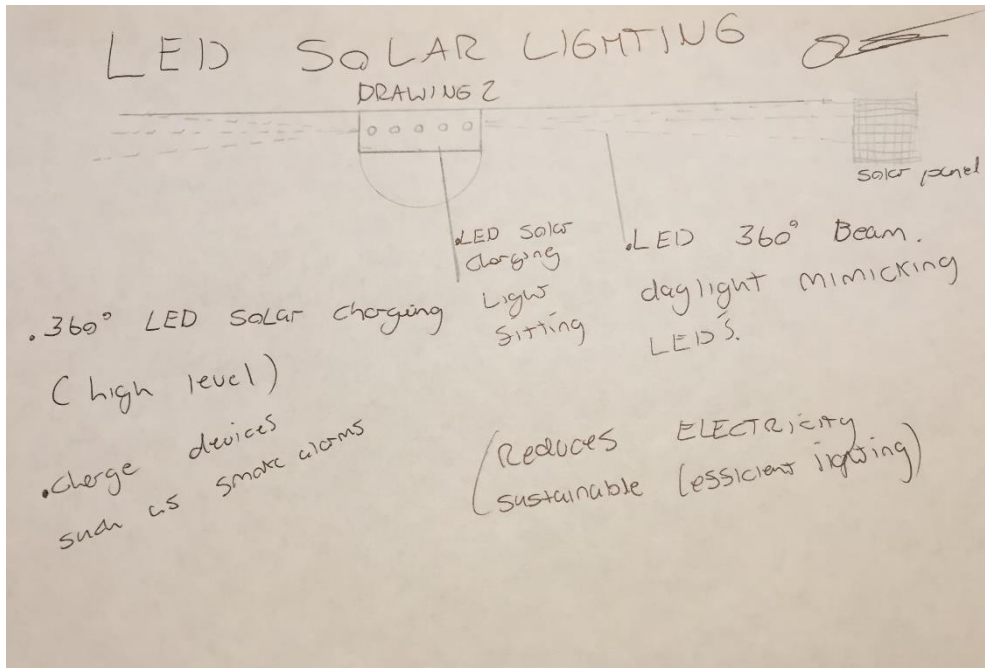 LED SOLAR LIGHTING
DRAWING 2
solar panel
.LED Solar
Charging
Light
sitting
.LED 360° Beam.
daylight mimicking
LED's.
.360° LED Solar charging
(high level)
.charge devices
such as smoke alarms
(Reduces ELECTRICITY
sustainable (essicient lighting)